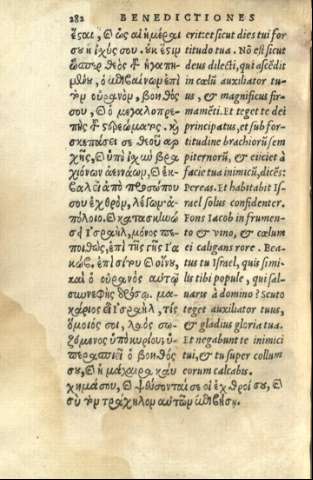 282 BENEDICTIONES
ἔσαι, καὶ ὡς αἱ ἡμέραι
σου ἡ ἰχύς σου. οὐκ ἔστιν
ὥσπερ θεὸς τοῦ ἠγαπη-
μένου, ὁ ἀναβαίνων ἐπὶ
τὴν οὐρανὸν, βοηθός
σου, καὶ ὁ μεγαλοπρε-
πὴς τοῦ στερεώματος. καὶ
σκεπάσει σε θεοῦ ἀρ-
χῆς, καὶ ὑπὸ ἰχὺν βρα
χιόνων ἀενάων, καὶ ἐκ-
βαλεῖ ἀπὸ προσώπου
σου ἐχθρὸν, λέγων ἀ-
πόλοιο. καὶ κατασκηνώ
σει ἰσραὴλ, μόνος πε-
ποιθὼς, ἐπὶ τῆς γῆς ἰα
κὼβ, ἐπὶ σίτῳ καὶ οἴνῳ,
καὶ ὁ οὐρανὸς αὐτῷ
συννεφὴς δρόσῳ. μα-
κάριος εἶ ἰσραὴλ, τίς
ὅμοιός σοι, λαὸς σω-
ζόμενος ὑπὸ κυρίου; ὑ-
περασπιεῖ ὁ βοηθός
σου, καὶ ἡ μάχαιρα καύ
χημά σου, καὶ ψεύσονταί σε οἱ ἐχθροί σου, καὶ
σὺ τὸν τράχηλον αὐτῶν ἐπιβήσῃ.
erit: et sicut dies tui for
titudo tua. Nō est sicut
deus dilecti, qui ascēdit
in cœlū auxiliator tu-
us, & magnificus fir-
mamēti. Et teget te dei
principatus, et sub for-
titudine brachiorū sem
piternorū, & eiiciet à
facie tua inimicū, dicēs:
Pereas. Et habitabit Is-
rael solus confidenter.
Fons Iacob in frumen-
to & vino, & cœlum
ei caligans rore. Bea-
tus tu Israel, quis simi-
lis tibi popule, qui sal-
uaris à domino? Scuto
teget auxiliator tuus,
& gladius gloria tua.
Et negabunt te inimici
tui, & tu super collum
eorum calcabis.